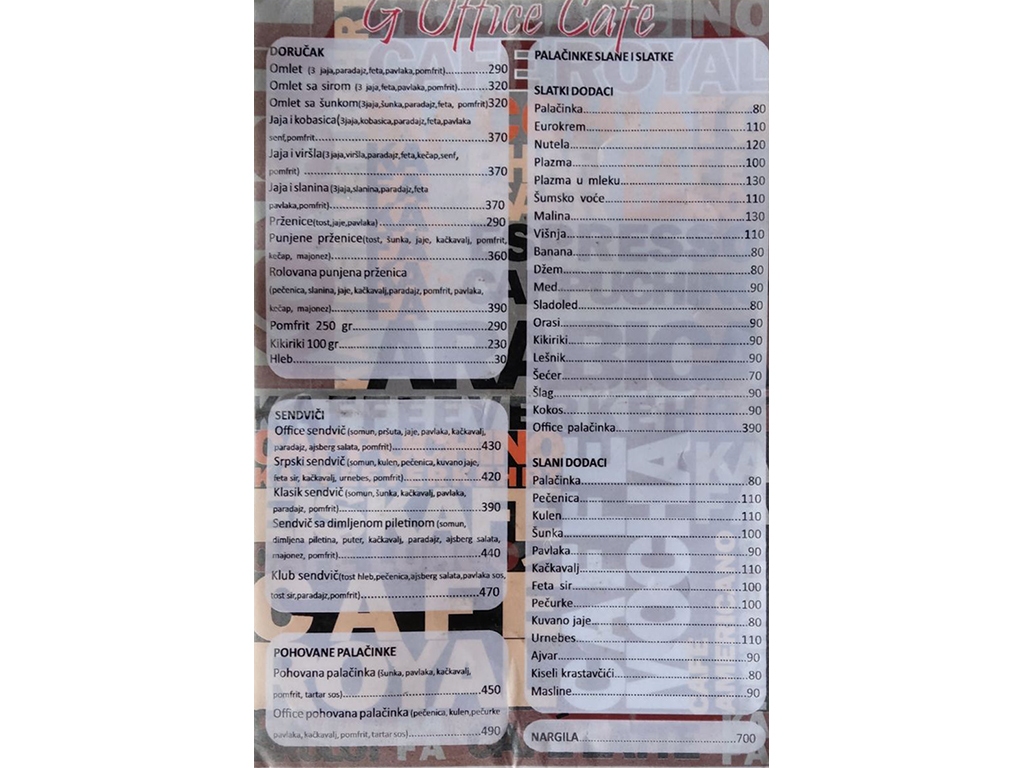 G Office Cafe
DORUČAK
Omlet (3 jaja,paradajz,feta,pavlaka,pomfrit)............290
Omlet sa sirom (3 jaja,feta,pavlaka,pomfrit)..........320
Omlet sa šunkom(3jaja,šunka,paradajz,feta, pomfrit)320
Jaja i kobasica(3jaja,kobasica,paradajz,feta,pavlaka
senf,pomfrit......................................................370
Jaja i viršla(3jaja,viršla,paradajz,feta,kečap,senf,
pomfrit) ............................................................370
Jaja i slanina(3jaja,slanina,paradajz,feta
pavlaka,pomfrit)..............................................370
Prženice(tost,jaje,pavlaka) ................................290
Punjene prženice(tost, šunka, jaje, kačkavalj, pomfrit,
kečap, majonez)................................................360
Rolovana punjena prženica
(pečenica, slanina, jaje, kačkavalj,paradajz, pomfrit, pavlaka,
kečap, majonez)................................................390
Pomfrit 250 gr.........................................290
Kikiriki 100 gr............................................230
Hleb............................................................30
SENDVIČI
Office sendvič (somun, pršuta, jaje, pavlaka, kačkavalj,
paradajz, ajsberg salata, pomfrit)...........................430
Srpski sendvič (somun, kulen, pečenica, kuvano jaje,
feta sir, kačkavalj, urnebes, pomfrit).......................420
Klasik sendvič (somun, šunka, kačkavalj, pavlaka,
paradajz, pomfrit)...........................................390
Sendvič sa dimljenom piletinom (somun,
dimljena piletina, puter, kačkavalj, paradajz, ajsberg salata,
majonez, pomfrit)...........................................440
Klub sendvič(tost hleb,pečenica,ajsberg salata,pavlaka sos,
tost sir,paradajz,pomfrit)....................................470
POHOVANE PALAČINKE
Pohovana palačinka (šunka, pavlaka, kačkavalj,
pomfrit, tartar sos)...........................................450
Office pohovana palačinka (pečenica, kulen,pečurke
pavlaka, kačkavalj, pomfrit, tartar sos)......................490
PALAČINKE SLANE I SLATKE
SLATKI DODACI
Palačinka..................................................80
Eurokrem................................................110
Nutela....................................................120
Plazma...................................................100
Plazma u mleku.......................................130
Šumsko voće..........................................110
Malina....................................................130
Višnja.....................................................110
Banana....................................................80
Džem.......................................................80
Med.........................................................90
Sladoled...................................................80
Orasi........................................................90
Kikiriki......................................................90
Lešnik.......................................................90
Šećer.......................................................70
Šlag..........................................................90
Kokos.......................................................90
Office palačinka......................................390
SLANI DODACI
Palačinka..................................................80
Pečenica................................................110
Kulen.....................................................110
Šunka.....................................................100
Pavlaka....................................................90
Kačkavalj................................................110
Feta sir..................................................100
Pečurke..................................................100
Kuvano jaje..............................................80
Urnebes.................................................110
Ajvar........................................................90
Kiseli krastavčići.......................................80
Masline....................................................90
NARGILA.................................................700